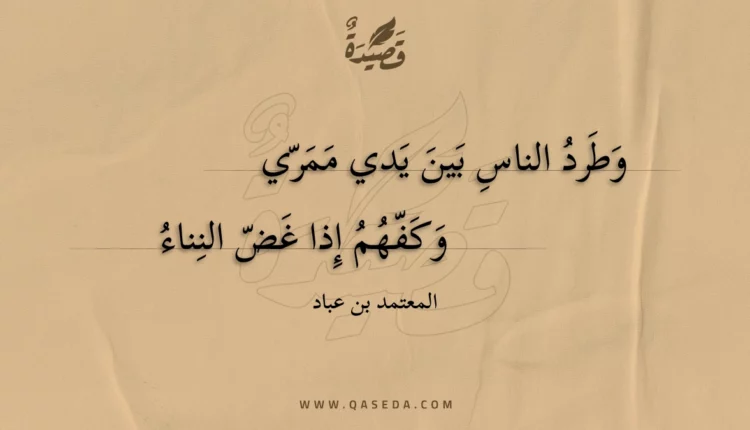 قَصِيدَةٌ
وَطَردُ الناسِ بَينَ يَدي مَمَرّي
وَكَفّهُمُ إِذا غَضّ النِناءُ
المعتمد بن عباد
WWW.QASEDA.COM